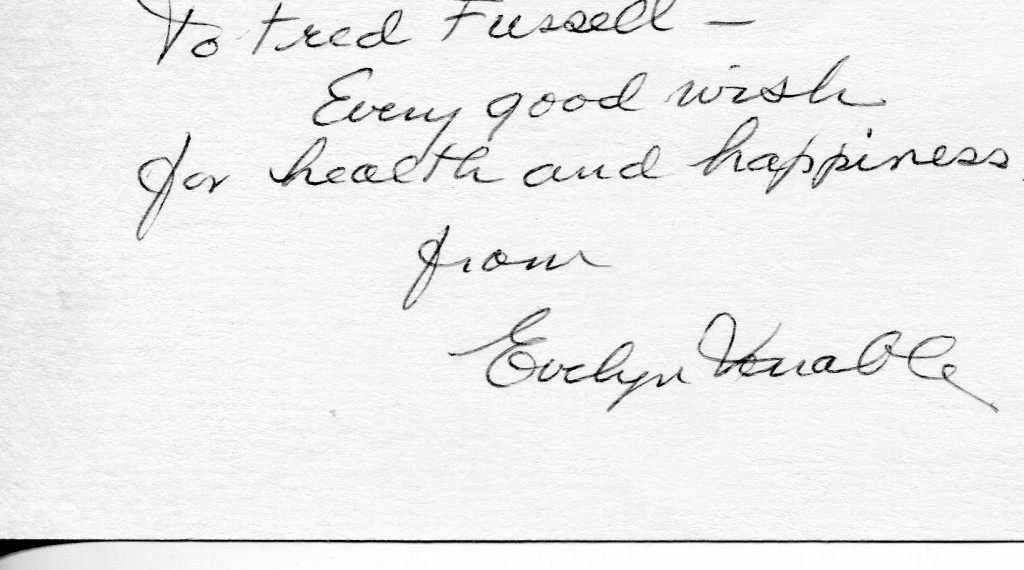 To Fred Fussell —
Every good wish
for health and happiness
from
Evelyn Venable